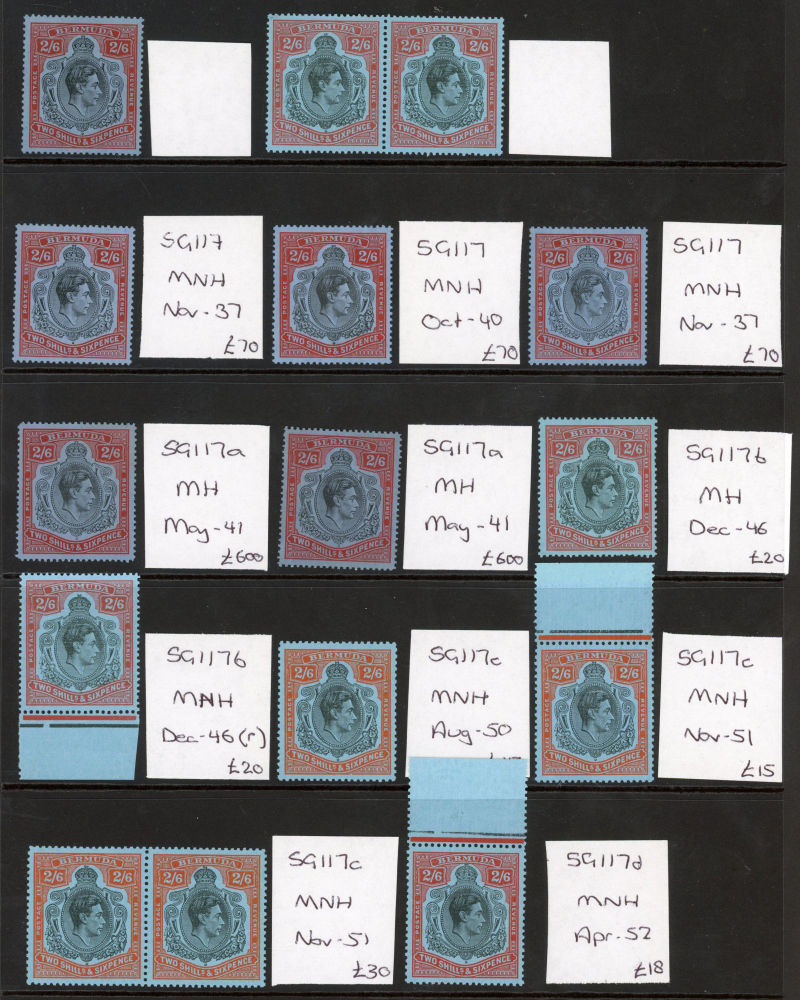 BERMUDA
2/6 2/6
POSTAGE REVENUE
TWO SHILLS & SIXPENCE
BERMUDA
2/6 2/6
POSTAGE REVENUE
TWO SHILLS & SIXPENCE
BERMUDA
2/6 2/6
POSTAGE REVENUE
TWO SHILLS & SIXPENCE
BERMUDA
2/6 2/6
POSTAGE REVENUE
TWO SHILLS & SIXPENCE
SG117
MNH
Nov-37
£70
BERMUDA
2/6 2/6
POSTAGE REVENUE
TWO SHILLS & SIXPENCE
SG117
MNH
Oct-40
£70
BERMUDA
2/6 2/6
POSTAGE REVENUE
TWO SHILLS & SIXPENCE
SG117
MNH
Nov-37
£70
BERMUDA
2/6 2/6
POSTAGE REVENUE
TWO SHILLS & SIXPENCE
SG117a
MH
May-41
£600
BERMUDA
2/6 2/6
POSTAGE REVENUE
TWO SHILLS & SIXPENCE
SG117a
MH
May-41
£600
BERMUDA
2/6 2/6
POSTAGE REVENUE
TWO SHILLS & SIXPENCE
SG117b
MH
Dec-46
£20
BERMUDA
2/6 2/6
POSTAGE REVENUE
TWO SHILLS & SIXPENCE
SG117b
MNH
Dec-46(r)
£20
BERMUDA
2/6 2/6
POSTAGE REVENUE
TWO SHILLS & SIXPENCE
SG117c
MNH
Aug-50
BERMUDA
2/6 2/6
POSTAGE REVENUE
TWO SHILLS & SIXPENCE
SG117c
MNH
Nov-51
£15
BERMUDA
2/6 2/6
POSTAGE REVENUE
TWO SHILLS & SIXPENCE
BERMUDA
2/6 2/6
POSTAGE REVENUE
TWO SHILLS & SIXPENCE
SG117c
MNH
Nov-51
£30
BERMUDA
2/6 2/6
POSTAGE REVENUE
TWO SHILLS & SIXPENCE
SG117d
MNH
Apr-52
£18